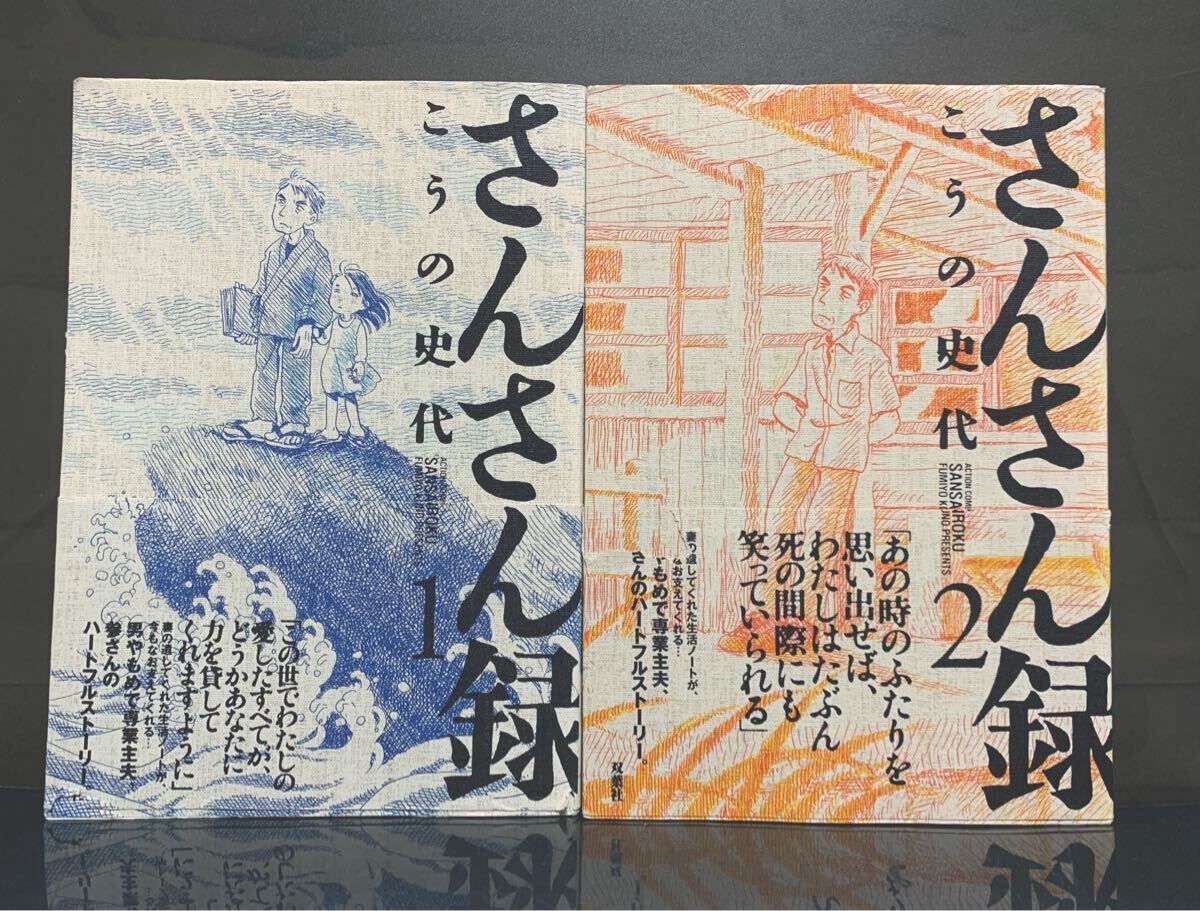 さんさん録
こうの史代
ACTION COMICS
SANSAIROKU
FUMIYO KOUNO PRESENTS
1
「この世でわたしの
愛したすべてが、
どうかあなたに
力を貸して
くれますように」
妻の遺してくれた生活ノートが、
今もなお支えてくれる…
男やもめで専業主夫、
参さんの
ハートフルストーリー。
さんさん録
こうの史代
ACTION COMICS
SANSAIROKU
FUMIYO KOUNO PRESENTS
2
「あの時のふたりを
思い出せば、
わたしはたぶん
死の間際にも
笑っていられる」
妻の遺してくれた生活ノートが、
なお支えてくれる…
もめで専業主夫、
さんのハートフルストーリー。
双葉社